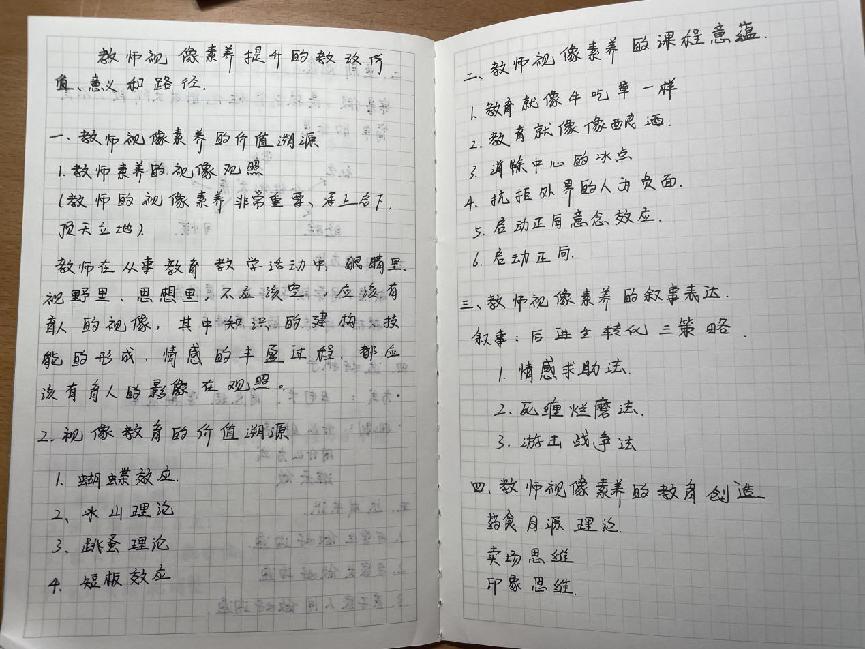 教师视像素养提升的教改价
值、意义和路径.
一、教师视像素养的价值溯源
1.教师素养的视像观照
(教师的视像素养非常重要、承上启下.
顶天立地).
教师在从事教育教学活动中,眼睛里.
视野里、思想里,不应该空,应该有
育人的视像,其中知识的建构,技
能的形成,情感的丰盈过程,都应
该有育人的影像在观照。
2.视像教育的价值溯源
1.蝴蝶效应.
2、冰山理论
3、跳蚤理论
4.短板效应
二、教师视像素养的课程意蕴.
1.教育就像牛吃草一样
2.教育就像像酿酒.
3.消除中心的冰点
4.抗拒外界的人为负面.
5.启动正向意念效应.
6.启动正向.
三、教师视像素养的叙事表达.
叙事:后进生转化三策略.
1.情感求助法.
2.死缠烂磨法.
3.游击战争法
四.教师视像素养的教育创造
药食同源理论.
卖场思维
印象思维.